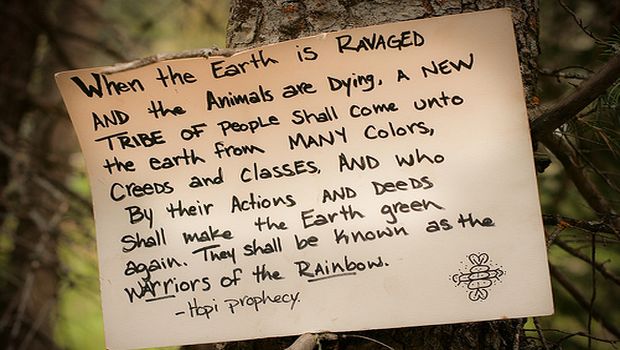 When the Earth is RAVAGED
AND the Animals are Dying, A NEW
TRIBE OF people Shall come unto
the earth from MANY Colors,
Creeds and Classes, AND who
By their Actions AND DeeDS
Shall make the Earth green
again. They shall be known as the
WARRiors of the RAinbow.
-Hopi prophecy.